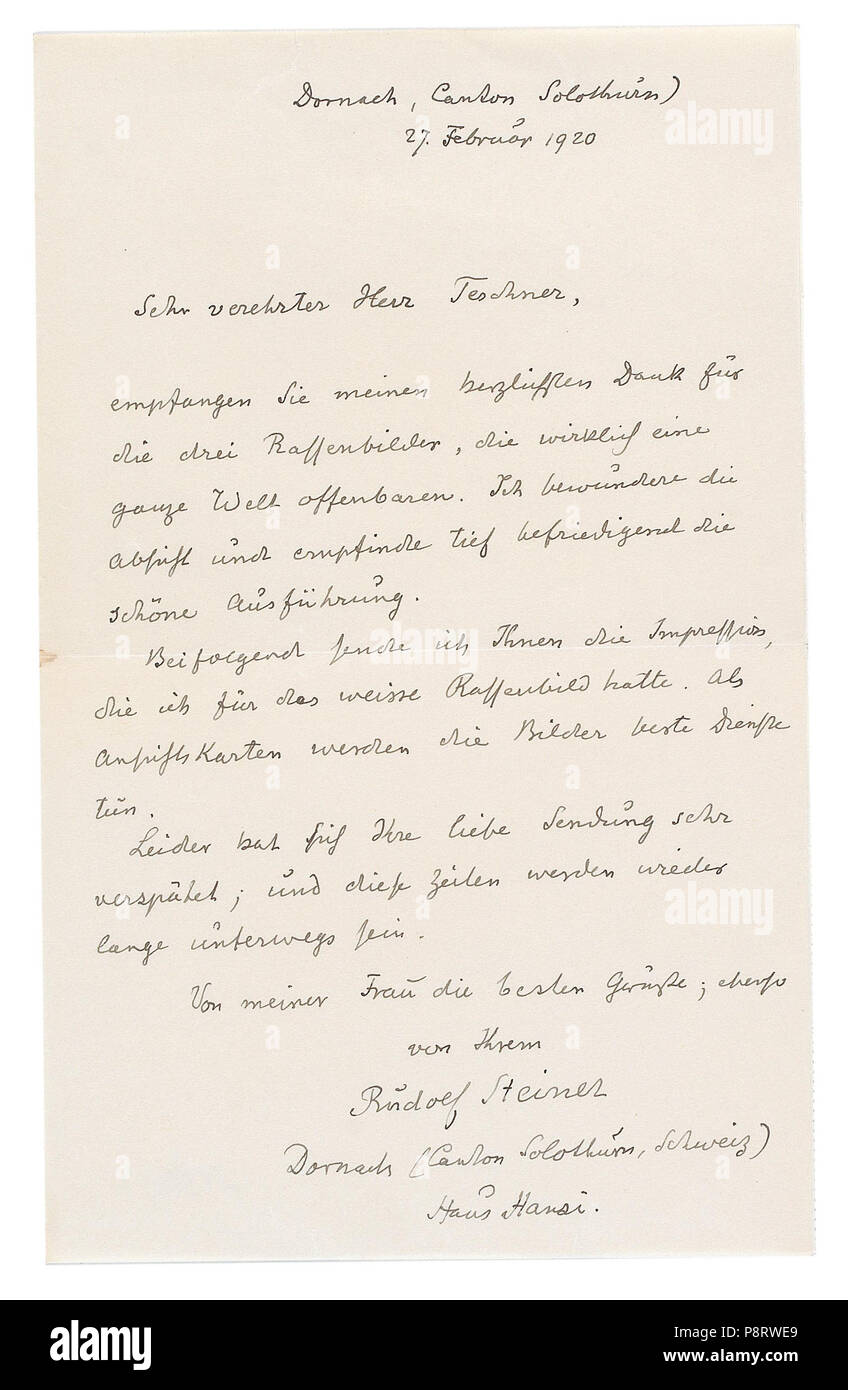 Dornach, Canton Solothurn)
27. Februar 1920
Sehr verehrter Herr Teschner,
empfangen Sie meinen herzlichsten Dank für
die drei Rassenbilder, die wirklich eine
ganze Welt offenbaren. Ich bewundere die
Absicht und empfinde tief befriedigend die
schöne Ausführung.
Beifolgend sende ich Ihnen die Impression,
die ich für das weisse Rassenbild hatte. Als
Ansichtskarten werden die Bilder beste Dienste
tun.
Leider hat sich Ihre liebe Sendung sehr
verspätet; und diese Zeilen werden wieder
lange unterwegs sein.
Von meiner Frau die besten Grüße; ebenso
von Ihrem
Rudolf Steiner
Dornach (Canton Solothurn, Schweiz)
Haus Hansi.
a alamy
a alamy
alamy
Image ID: P8RWE9
www.alamy.com